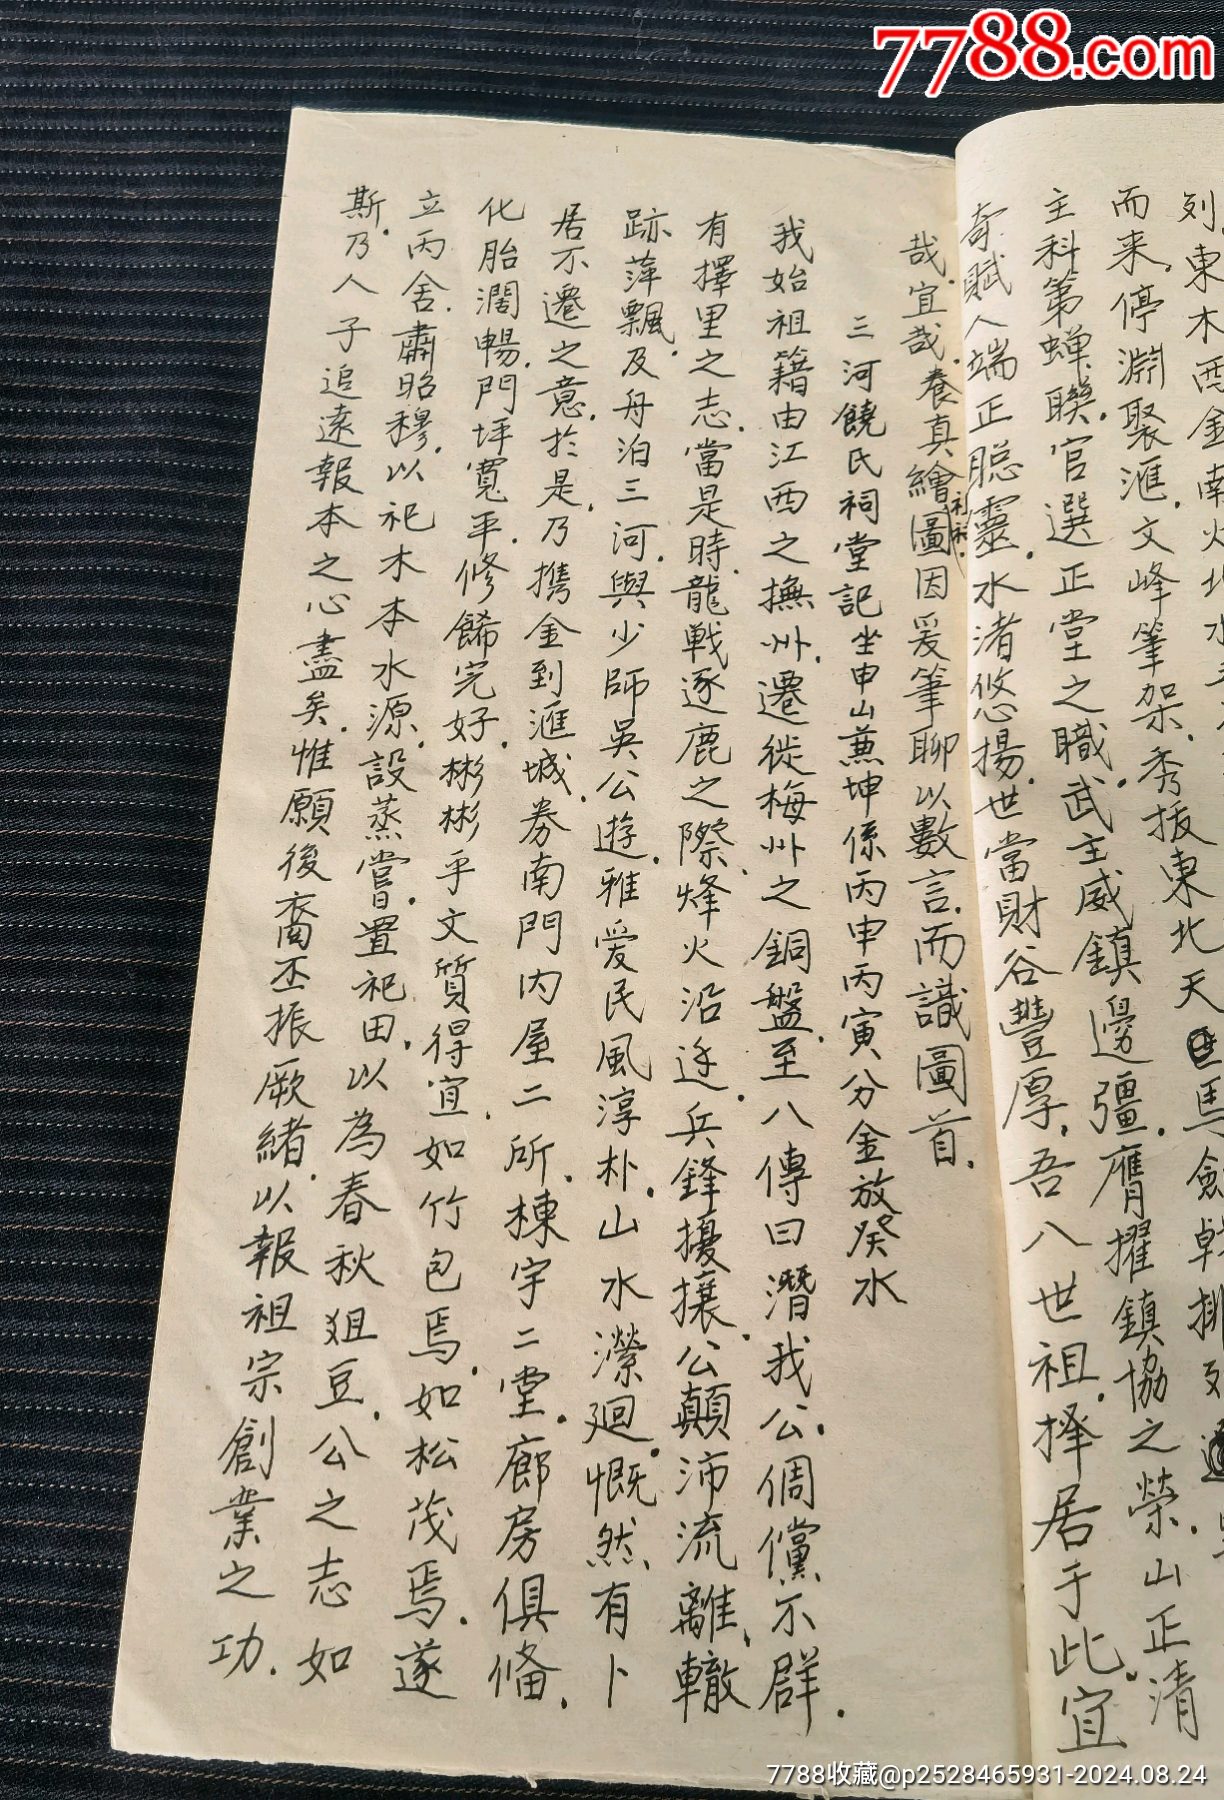 7788.com
列.東木西金南火北水
而来.停淵聚滙.文峰筆架.秀拔東北天馬劍戟排列
主科第蝉聯.官選正堂之職.武主威鎮邊疆.膺擢鎮協之榮.山正清
奇賦人端正聡靈.水渚悠揚.世當財谷豐厚.吾八世祖.择居于此.宜
哉.宜哉.養真繪圖因爰筆聊以數言.而識圖首.
三河饒氏祠堂記 坐申山兼坤係丙申丙寅分金放癸水
我始祖籍由江西之撫州.遷徙梅州之銅盤.至八傳曰潛我公.倜儻不群.
有擇里之志.當是時.龍戦逐鹿之際.烽火沿途.兵鋒擾攘.公顛沛流離.轍
跡萍飄.及舟泊三河.與少師吳公遊.雅爱民風淳朴.山水瀠廻.慨然有卜
居不遷之意.於是.乃携金到滙城.券南門内屋二所.棟宇二堂.廊房俱俻.
化胎濶暢.門坪寬平.修餙完好.彬彬乎文質得宜.如竹包焉.如松茂焉.遂
立丙舍.肅昭穆.以祀木本水源.設蒸嘗.置祀田.以為春秋俎豆.公之志如
斯.乃人子追遠報本之心盡矣.惟願後裔丕振厥緒.以報祖宗創業之功.
7788收藏@p2528465931-2024.08.24